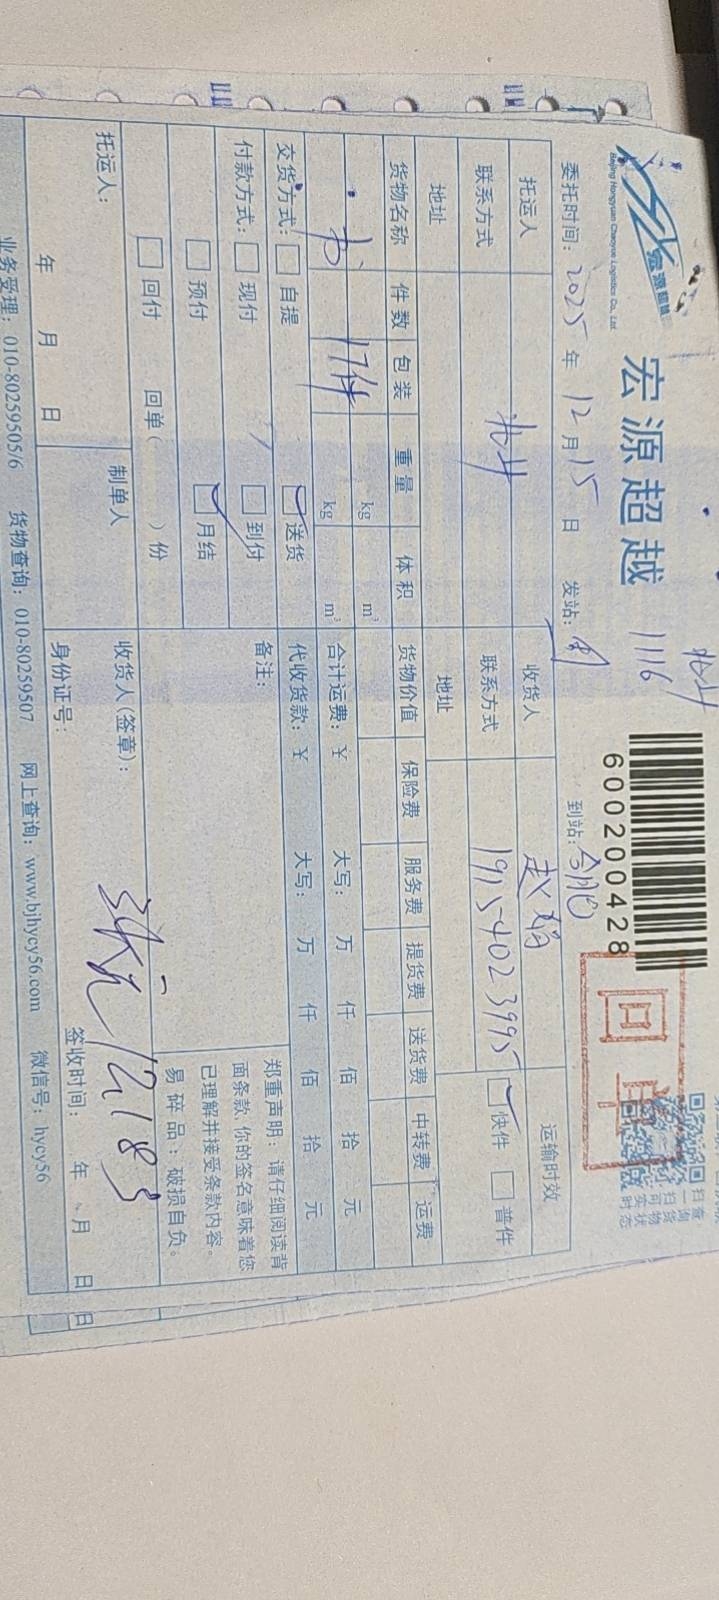 宏源超越
Beijing Hongyuan Chaoyue Logistics Co., Ltd
宏源超越
1116
600200428
扫一扫
查询货物
可实时状态
回单
委托时间：2025年12月15日 发站： 到站：合肥
托运人 收货人 赵 运输时效
联系方式 联系方式 19154023995 快件 普件
地址 地址
货物名称 件数 包装 重量 体积 货物价值 保险费 服务费 提货费 送货费 中转费 运费
kg m³
书 17件 kg m³
合计运费：¥ 大写： 万 仟 佰 拾 元
交货方式： 自提 送货 代收货款：¥ 大写： 万 仟 佰 拾 元
付款方式： 现付 到付 备注：
预付 月结
回付 回单（ ）份
郑重声明：请仔细阅读背
面条款，你的签名意味着您
已理解并接受条款内容。
易碎品：破损自负。
托运人： 制单人 收货人(签章)： 12183
年 月 日 身份证号： 签收时间： 年 月 日
日
业务受理：010-80259505/6 货物查询：010-80259507 网上查询：www.bjhycy56.com 微信号：hycy56